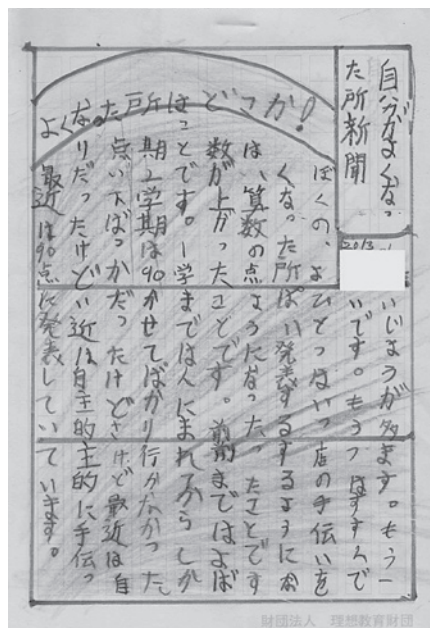 自分がよくなっ
た所新聞
2013
よくなった所はどっか!
ぼくの、よ
くなった所
は、算数の点
数が上がった
ことです。1学
期2学期は90
点い下ばっか
りだったけど
最近は90点
いじょうが多
いです。もう
ひとつはいっ
ぱい発表する
ようになった
ことです。前
まではんに
かせてばかり
だったけどさ
い近は自主的
に発表してい
ます。もう一
つはすすんで
店の手伝いを
するようにな
ったことです
。前まではよば
れてからしか
行かなかった
けど最近は自
主的に手伝っ
ています。
財団法人 理想教育財団